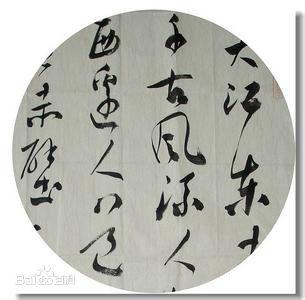 大江东
千古风流人
西边人道
赤壁
Baidu百科